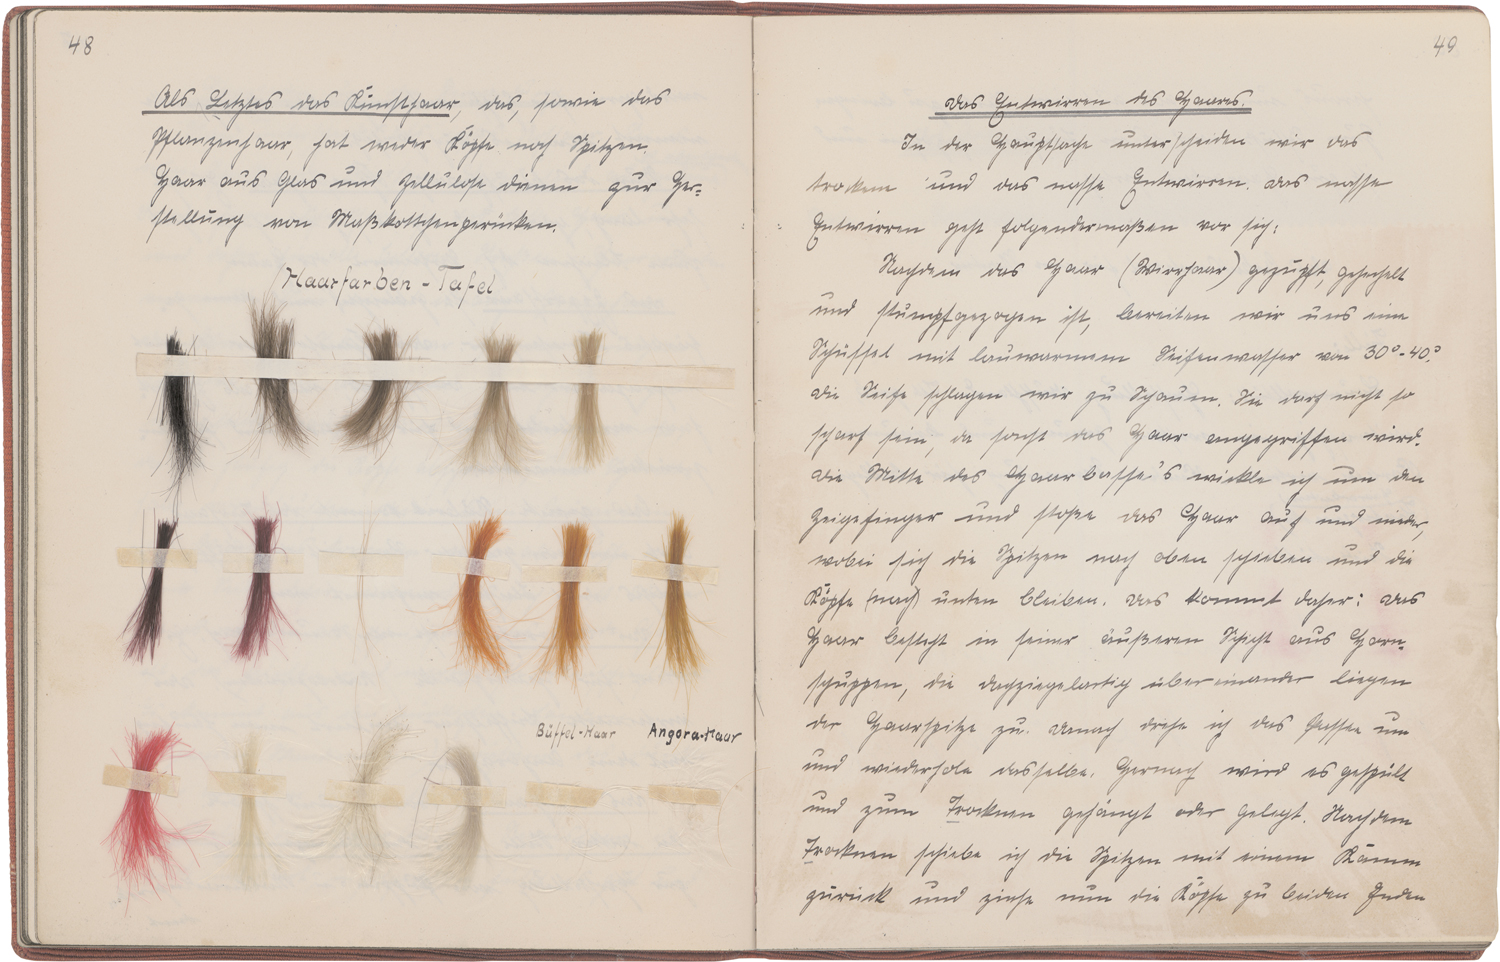 48
Als Letztes das Kunsthaar, das, sowie das
Pflanzenhaar, hat weder Köpfe noch Spitzen.
Haar aus Glas und Zellulose dienen zur Her-
stellung von Maßkottchenperücken.
Haarfarben-Tafel
Büffel-Haar
Angora-Haar
49
Das Entwirren des Haares.
In der Hauptsache unterscheiden wir das
trockene und das nasse Entwirren. Das nasse
Entwirren geht folgendermaßen vor sich:
Nachdem das Haar (Wirrhaar) gezupft, gehechelt
und stumpfgezogen ist, bereiten wir uns eine
Schüssel mit lauwarmem Seifenwasser von 30°-40°.
Die Seife schlagen wir zu Schaum. Sie darf nicht so
scharf sein, da sonst das Haar angegriffen wird.
Die Mitte des Haarbasse's wickle ich um den
Zeigefinger und stoße das Haar auf und nieder,
wobei sich die Spitzen nach oben schieben und die
Köpfe (nach) unten bleiben. Das kommt daher: Das
Haar besteht in seiner äußeren Schicht aus Horn-
schuppen, die dachziegelartig übereinander liegen
der Haarspitze zu. Danach drehe ich das um
und wiederhole dasselbe. Hernach wird es gespült
und zum Trocknen gehängt oder gelegt. Nachdem
Trocknen schiebe ich die Spitzen mit einem Kamm
zurück und ziehe nun die Köpfe zu beiden Enden